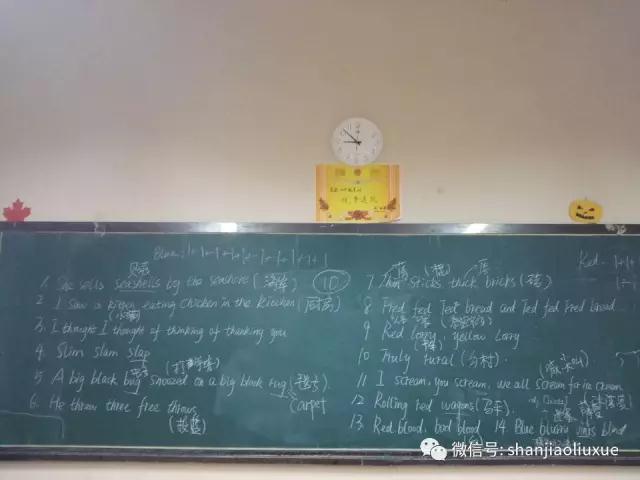 Blue: 1+1+1+1+1-1+1+1+1
贝壳
1. She sells seashells by the seashore (海岸) 10
2 I saw a kitten eating chicken in the kitchen (厨房)
(小猫)
3. I thought I thought of thinking of thanking you
4. Slim slam slap
(打)
5 A big black bug snoozed on a big black rug (毯子)
carpet
6. He threw three free throws
(投篮)
Red: 1+1+
厚
7 Thin sticks, thick bricks (砖)
8 Fred fed Ted bread and Ted fed Fred bread
9 Red lorry yellow lorry
10 Truly rural (乡村).
11 I scream, you scream, we all scream for ice cream
12 Rolling red wagons (马车).
13 Red blood, bad blood 14. Blue blurry blind
微信号: shanjiaoliuxue